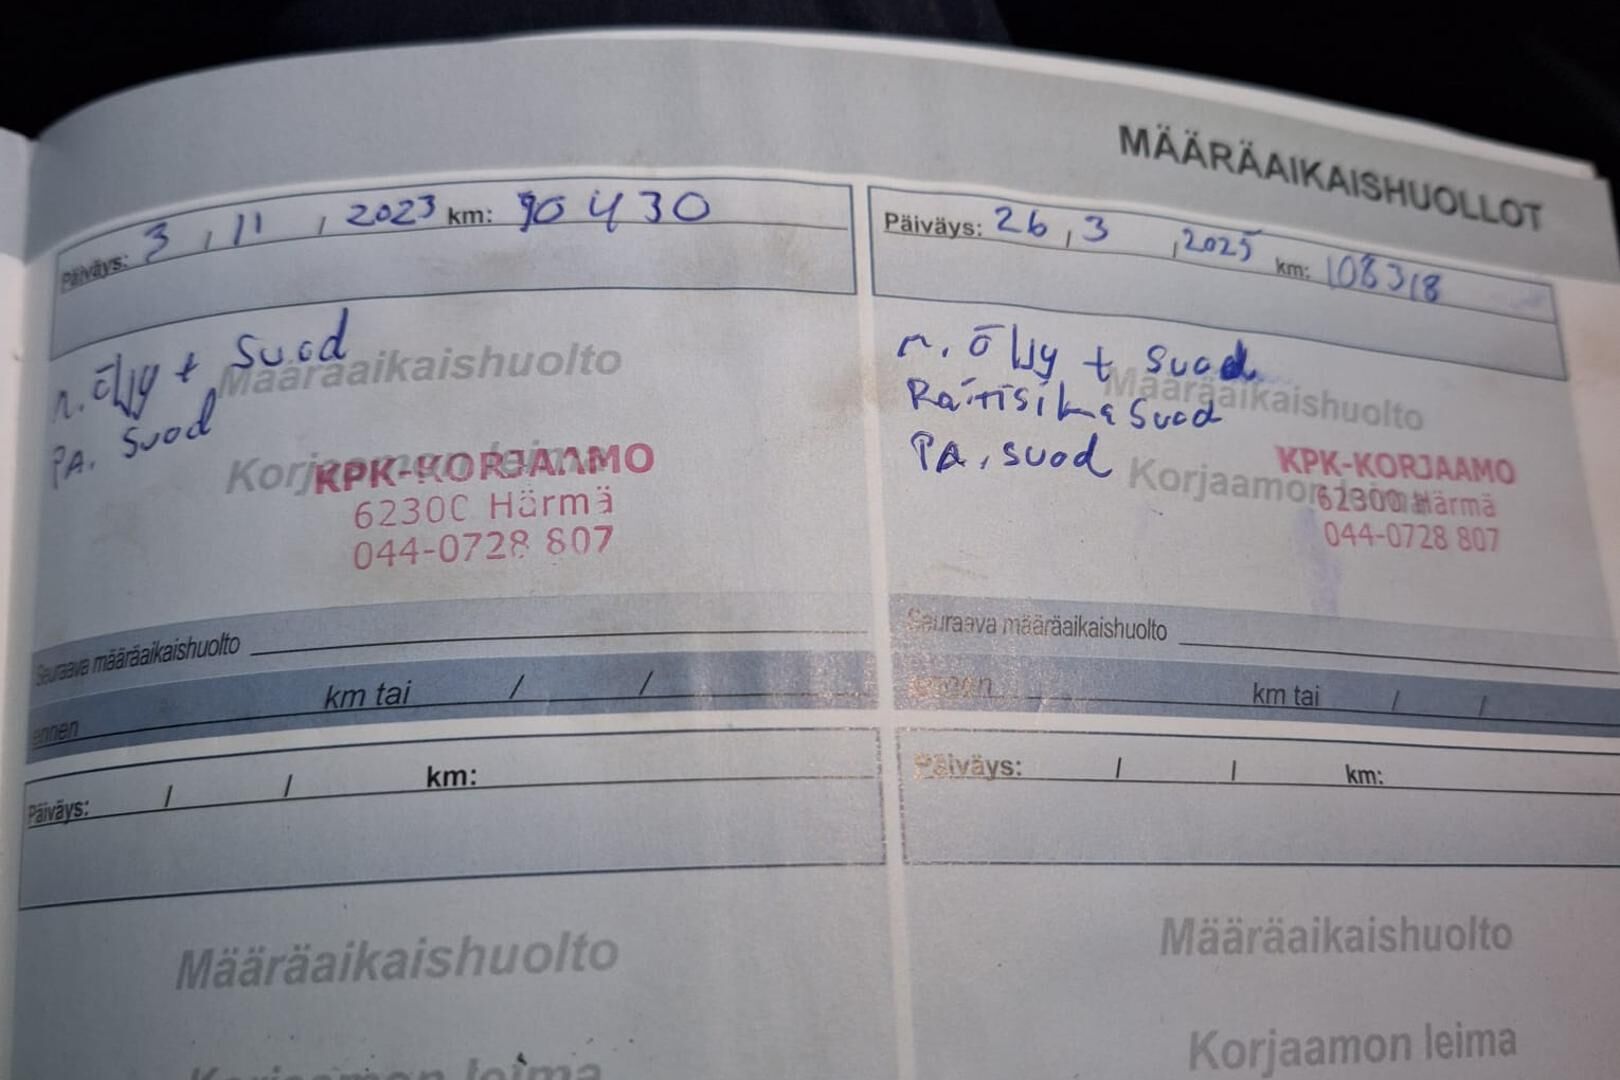 MÄÄRÄAIKAISHUOLLOT
Päiväys: 3 / 11 / 2023 km: 90 430
m. öljy + suod
PA. suod
Määräaikaishuolto
Korjaamon leima
KPK-KORJAAMO
62300 Härmä
044-0728 807
Seuraava määräaikaishuolto
ennen km tai / /
Päiväys: / / km:
Määräaikaishuolto
Korjaamon leima
Päiväys: 26 / 3 / 2025 km: 108318
m. öljy + suod
Raitisilma suod
PA. suod
Määräaikaishuolto
Korjaamon leima
KPK-KORJAAMO
62300 Härmä
044-0728 807
Seuraava määräaikaishuolto
ennen km tai / /
Päiväys: / / km:
Määräaikaishuolto
Korjaamon leima